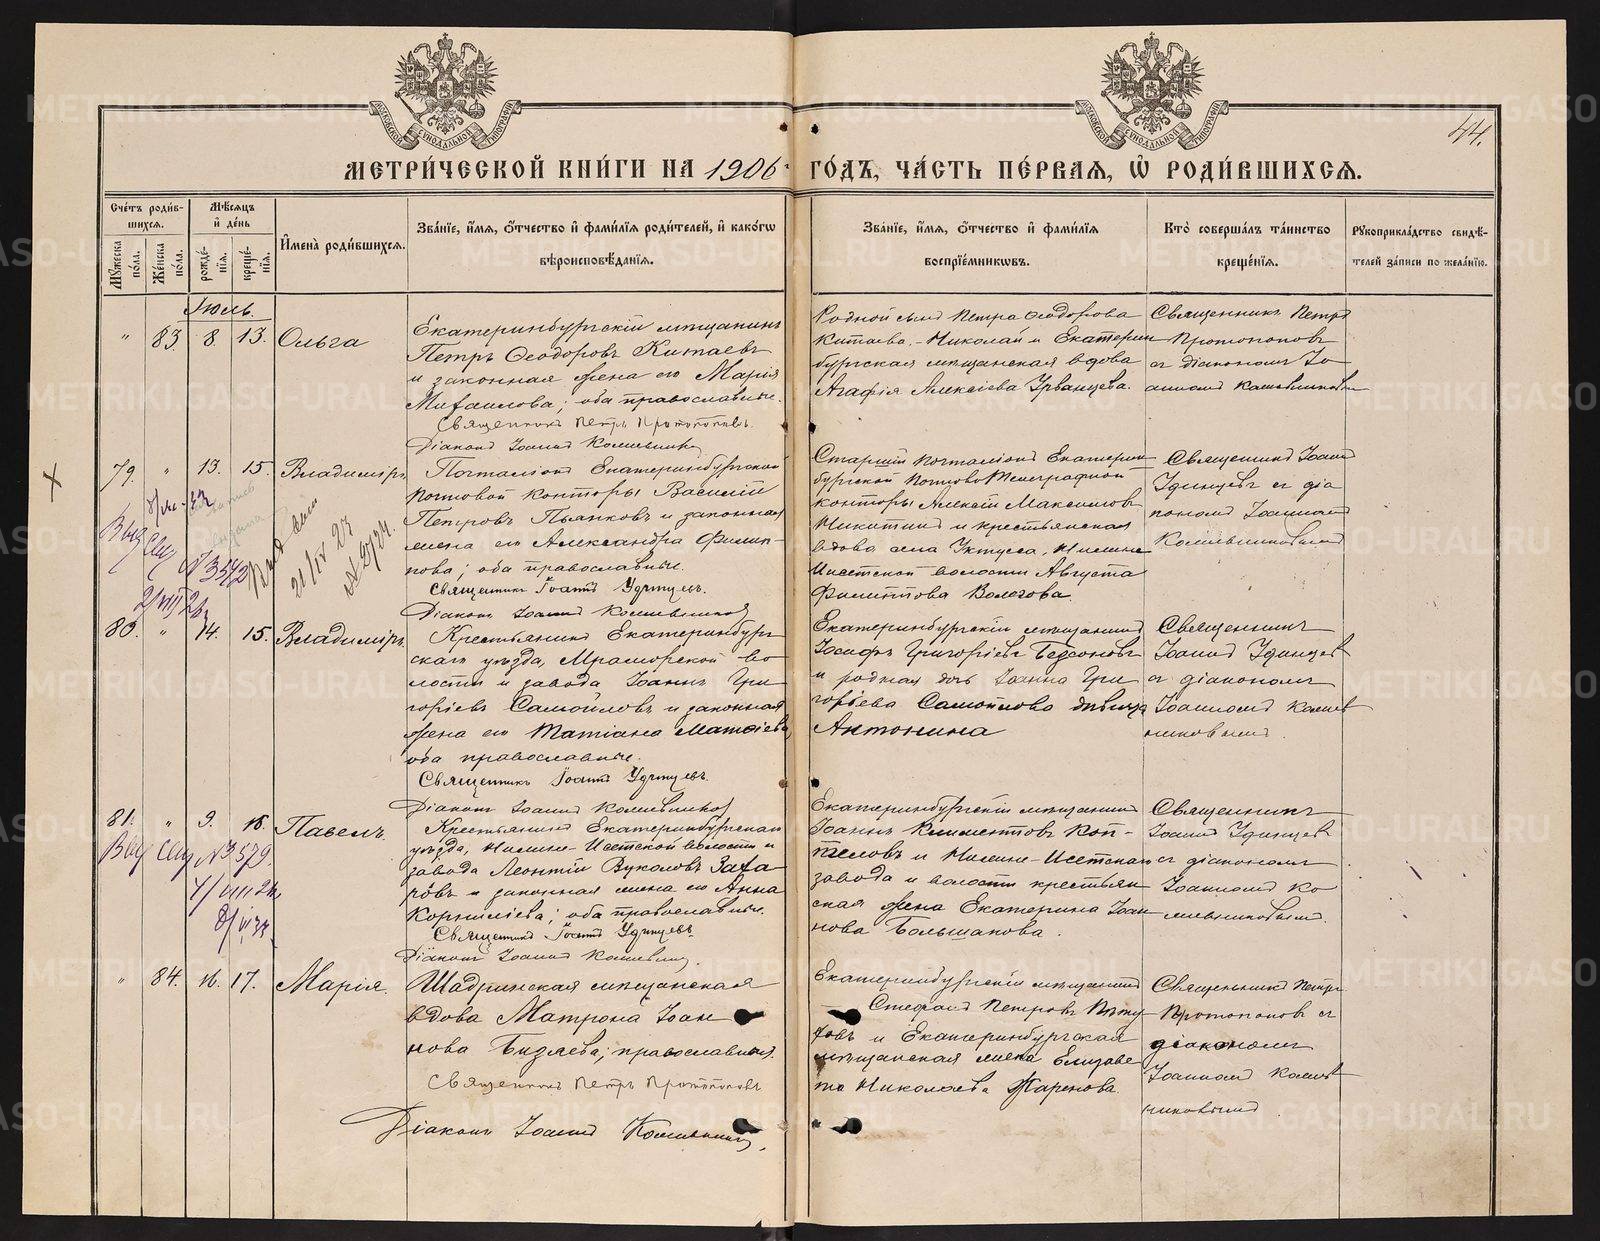 МОСКОВСКОЙ СѴНОДАЛЬНОЙ ТИПОГРАФІИ
МОСКОВСКОЙ СѴНОДАЛЬНОЙ ТИПОГРАФІИ
44.
МЕТРИ́ЧЕСКОЙ КНИ́ГИ НА 1906 ГО́ДЪ, ЧА́СТЬ ПЕ́РВАЯ, Ѡ҆ РОДИ́ВШИХСѦ.
Сче́тъ роди́в-
шихсѧ.
Му́жеска по́ла.
Же́нска по́ла.
Мѣ́сѧцъ
и҆ де́нь
рожде́-нїѧ.
креще́-нїѧ.
И҆мена̀ роди́вшихсѧ.
Зва́нїе, и҆́мѧ, ѻ҆́тчество и҆ фами́лїѧ роди́телей, и҆ како́гѡ
вѣроисповѣ́данїѧ.
Зва́нїе, и҆́мѧ, ѻ҆́тчество и҆ фами́лїѧ
воспрїе́мникѡвъ.
Кто̀ соверша́лъ та́инство
креще́нїѧ.
Рꙋкоприкла́дство свидѣ́-
телей за́писи по жела́нїю.
Іюль.
" 83. 8. 13. Ольга
Екатеринбургскій мѣщанинъ
Петръ Ѳеодоровъ Китаевъ
и законная жена его Марія
Михаилова; оба православные.
Священникъ Петръ Протопоповъ.
Діаконъ Іоаннъ Кошевниковъ
Родной сынъ Петра Ѳеодорова
Китаева - Николай и Екатерин
бургская мѣщанская вдова
Агафія Алексіева Урванцева.
Священникъ Петръ
Протопоповъ
съ діакономъ Іо
анномъ
79. " 13. 15. Владиміръ
Почталіонъ Екатеринбургской
почтовой конторы Василій
Петровъ Пьянковъ и законная
жена его Александра Филип-
пова; оба православные.
Священникъ Іоаннъ Удинцевъ.
Діаконъ Іоаннъ
Старшій почталіонъ Екатерин
бургской Почтово Телеграфной
конторы Алексій Максимовъ
Никитинъ и крестьянская
вдова села Уктусса, Нижне
Исетской волости Августа
Филиппова Вологова.
Священникъ Іоаннъ
Удинцевъ съ діа
кономъ Іоанномъ
№ 3542
21/IV 23
80. " 14. 15. Владиміръ
Крестьянинъ Екатеринбург
скаго уѣзда, Мраморской во
лости и завода Іоаннъ Гри
горіевъ Самойловъ и законная
жена его Татіана Матѳіева,
оба православные.
Священникъ Іоаннъ Удинцевъ.
Діаконъ Іоаннъ
Екатеринбургскій мѣщанинъ
Іосифъ Григоріевъ
и родная дочь Іоанна Гри
горіева Самойлова дѣвица
Антонина
Священникъ
Іоаннъ Удинцевъ
съ діакономъ
Іоанномъ
81. " 9. 16. Павелъ.
№ 3579.
Крестьянинъ Екатеринбургскаго
уѣзда, Нижне-Исетской волости и
завода Леонтій Вуколовъ Заха
ровъ и законная жена его Анна
Корниліева; оба православные.
Священникъ Іоаннъ Удинцевъ.
Діаконъ Іоаннъ
Екатеринбургскій мѣщанинъ
Іоаннъ Климентовъ Коп-
теловъ и Нижне-Исетскаго
завода и волости крестьян
ская жена Екатерина Іоан
нова Большакова.
Священникъ
Іоаннъ Удинцевъ
съ діакономъ
Іоанномъ
" 84. 16. 17. Марія.
Шадринская мѣщанская
вдова Матрона Іоан
нова Бизяева; православная.
Священникъ Петръ Протопоповъ
Діаконъ Іоаннъ
Екатеринбургскій мѣщанинъ
Стефанъ Петровъ
и Екатеринбургская
мѣщанская жена Елизаве
та Николаева Жаренова.
Священникъ Петръ
Протопоповъ съ
діакономъ
Іоанномъ
METRIKI.GASO-URAL.RU